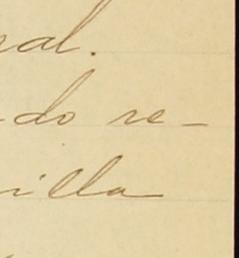 ral.
do re-
illa